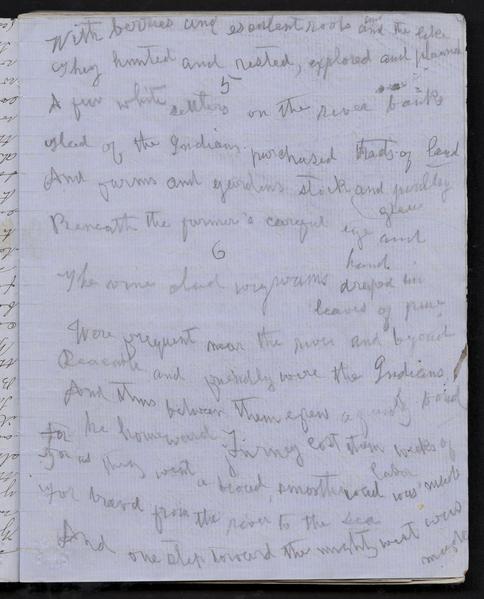 With berries and esculent roots and the like
They hunted and rested, explored and planned
5
A few white settlers on the river bank
Glad of the Indians purchased tracts of land
And farms and gardens stock and poultry
grew
Beneath the farmer's careful eye and
hand
6
The vine clad wigwams draped in
leaves of pine
Were frequent near the river and beyond
Peaceable and friendly were the Indians
And thus between them grew a friendly bond
For the homeward journey cost them weeks of
labor
For as they went a broad, smooth road was made
For travel from the river to the sea
And one step toward the mighty west were
made